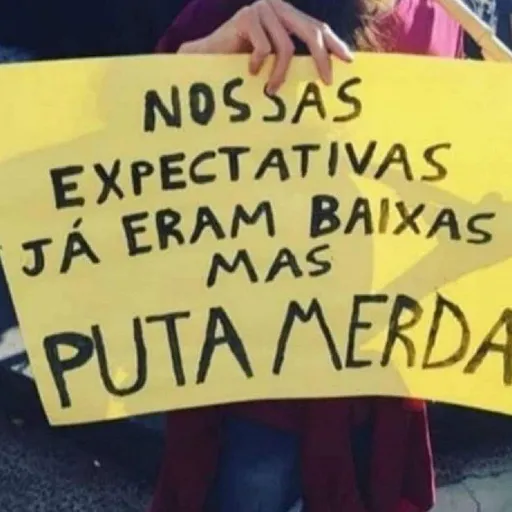 NOSSAS
EXPECTATIVAS
JÁ ERAM BAIXAS
MAS
PUTA MERDA